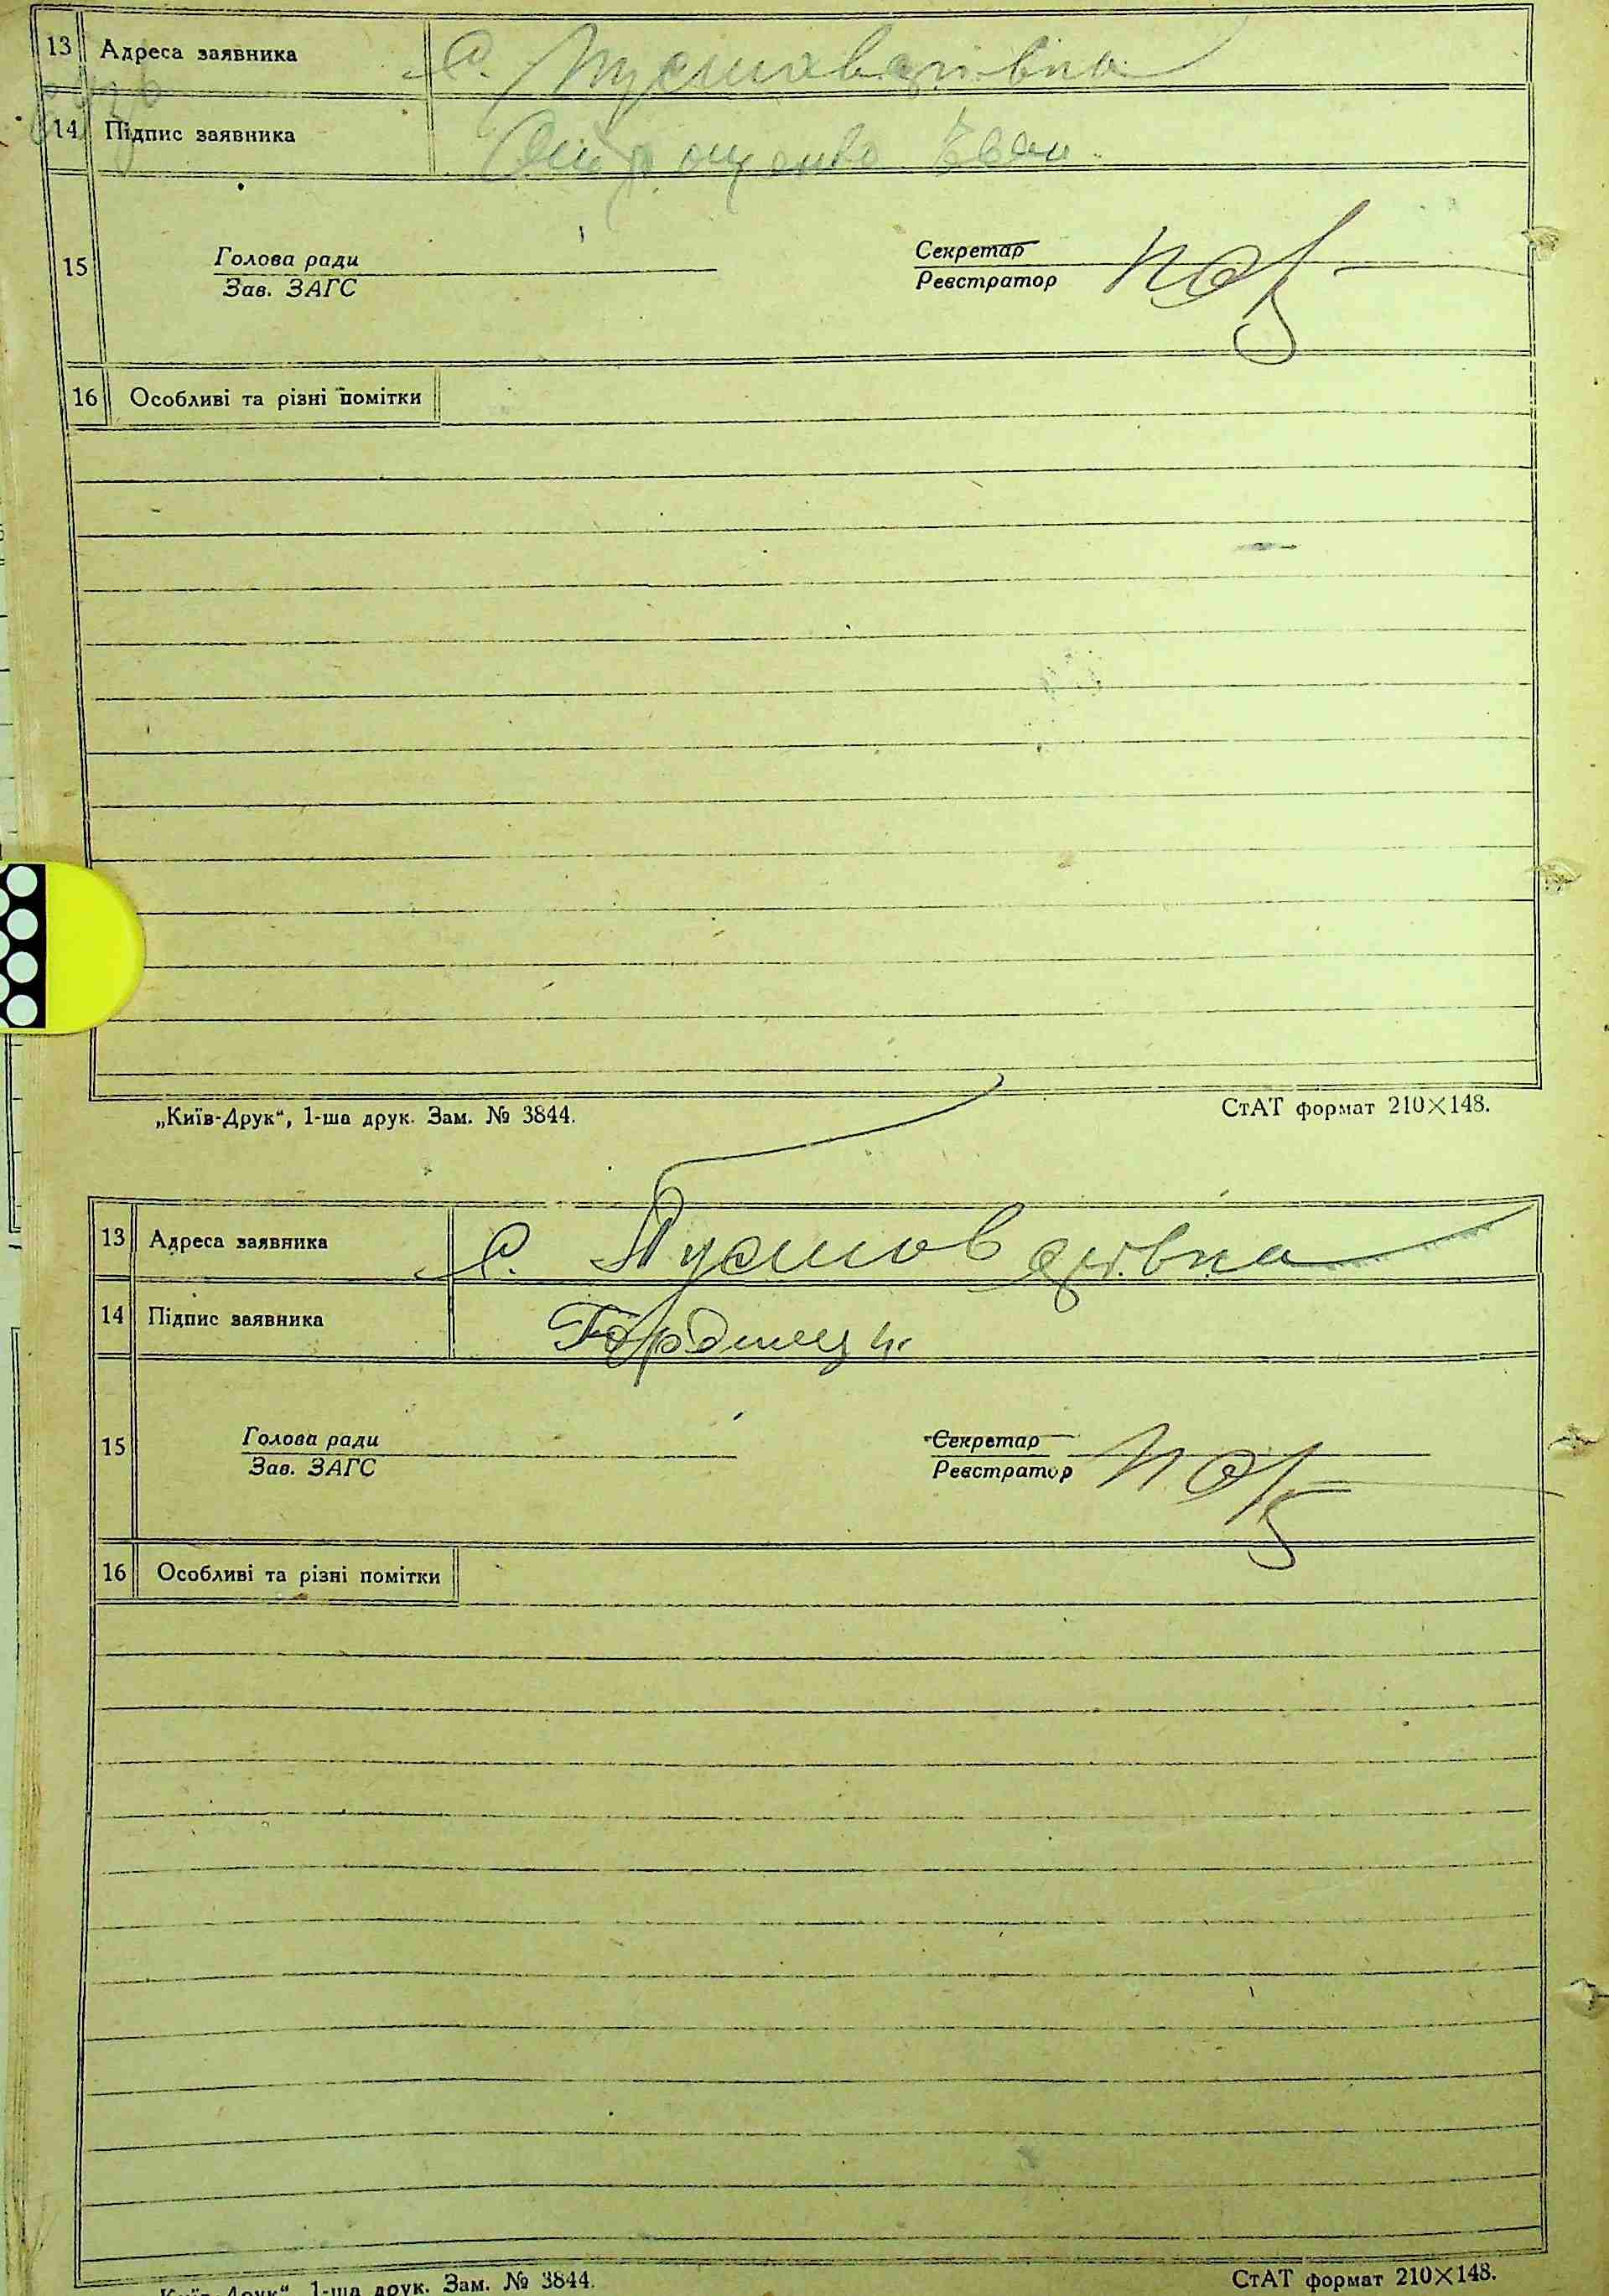 13 Адреса заявника С. Пустоварівка
14 Підпис заявника
15 Голова ради Секретар
Зав. ЗАГС Реєстратор
16 Особливі та різні помітки
„Київ-Друк“, 1-ша друк. Зам. № 3844. СтАТ формат 210×148.
13 Адреса заявника С. Пустоварівка
14 Підпис заявника
15 Голова ради Секретар
Зав. ЗАГС Реєстратор
16 Особливі та різні помітки
„Київ-Друк“, 1-ша друк. Зам. № 3844. СтАТ формат 210×148.